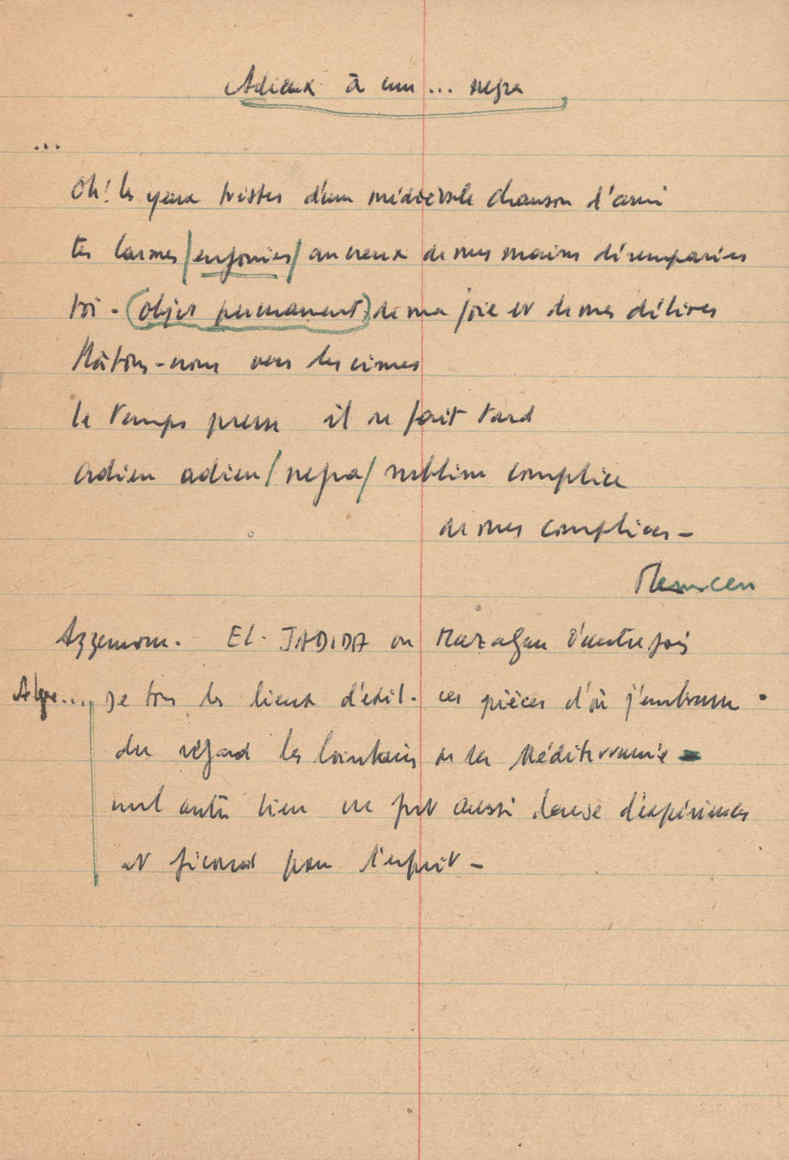 Adieux à une... negra
...
Oh! les yeux tristes d'une médiévale chanson d'ami
tes larmes/enfouies/au creux de mes mains désemparées
toi - (objet permanent) de ma joie et de mes délires
Hâtons-nous vers les cimes
le temps presse il se fait tard
adieu adieu/negra/sublime complice
de mes complices -
Azzemour. EL-JADIDA ou Mazagan d'autrefois
Alger... De tous les lieux d'exil. ces pièces d'où j'embrasse
du regard les lointains de la Méditerranée -
nul autre lieu ne fut aussi dense d'expériences
et fécond pour l'esprit -